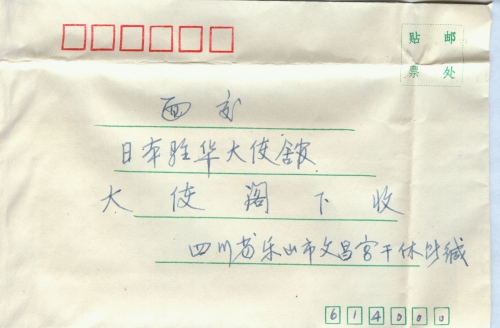 贴 邮
票 处
面交
日本驻华大使舘
大使阁下收
四川省乐山市文昌宫干休所缄
614000